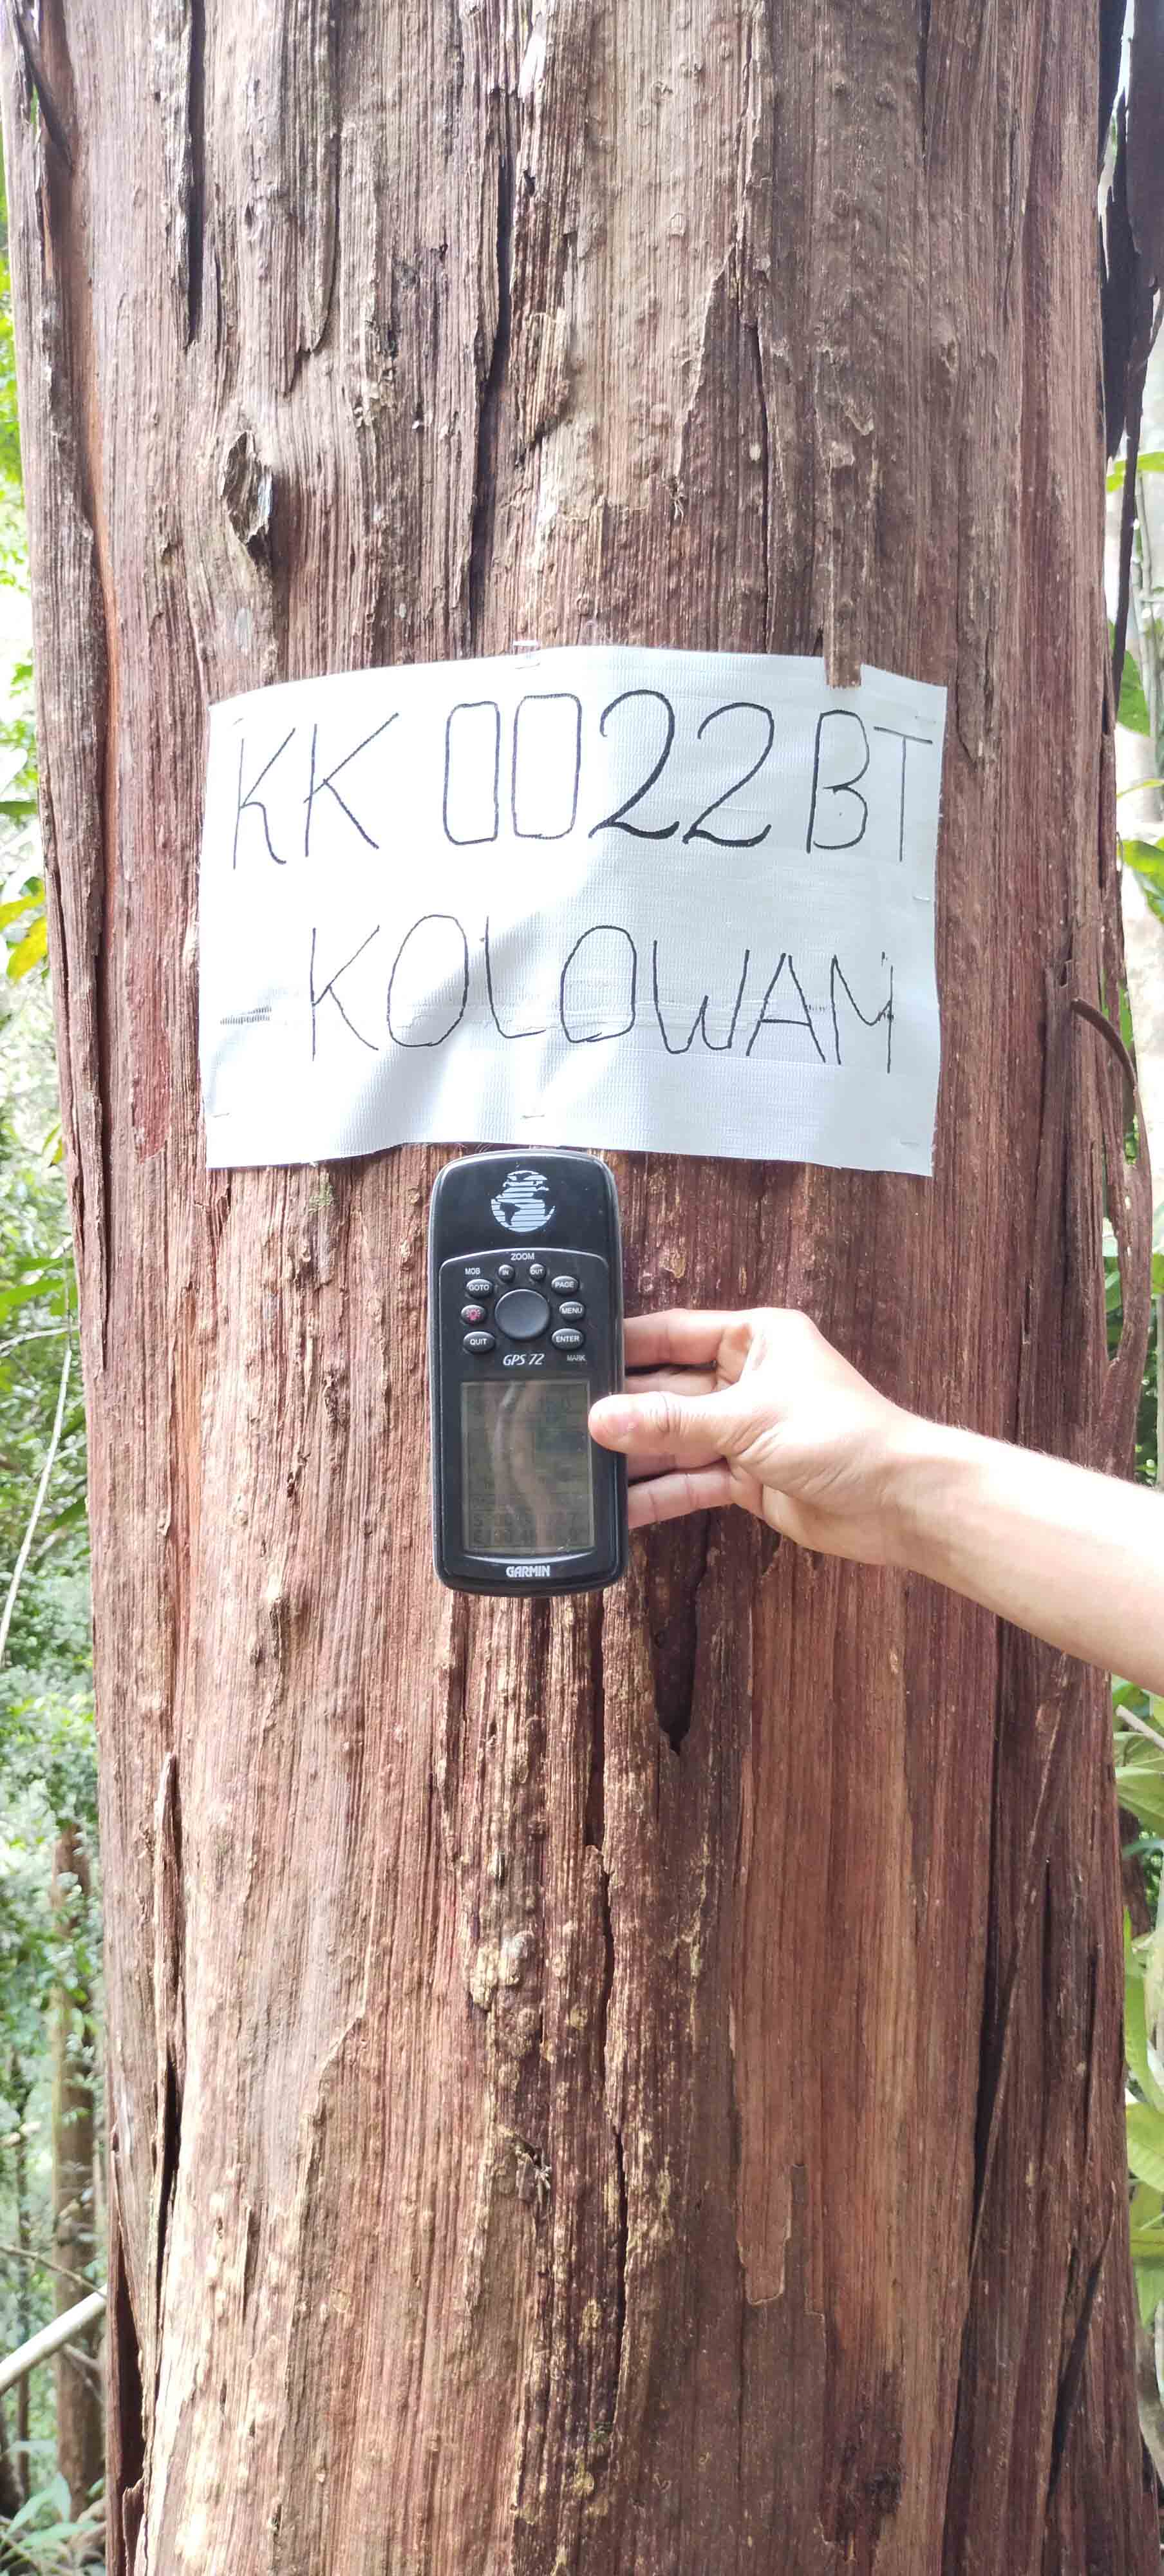 KK 0022 BT
- KOLOWAM
ZOOM
MOB IN OUT
GOTO PAGE
MENU
QUIT ENTER
GPS 72 MARK
GARMIN